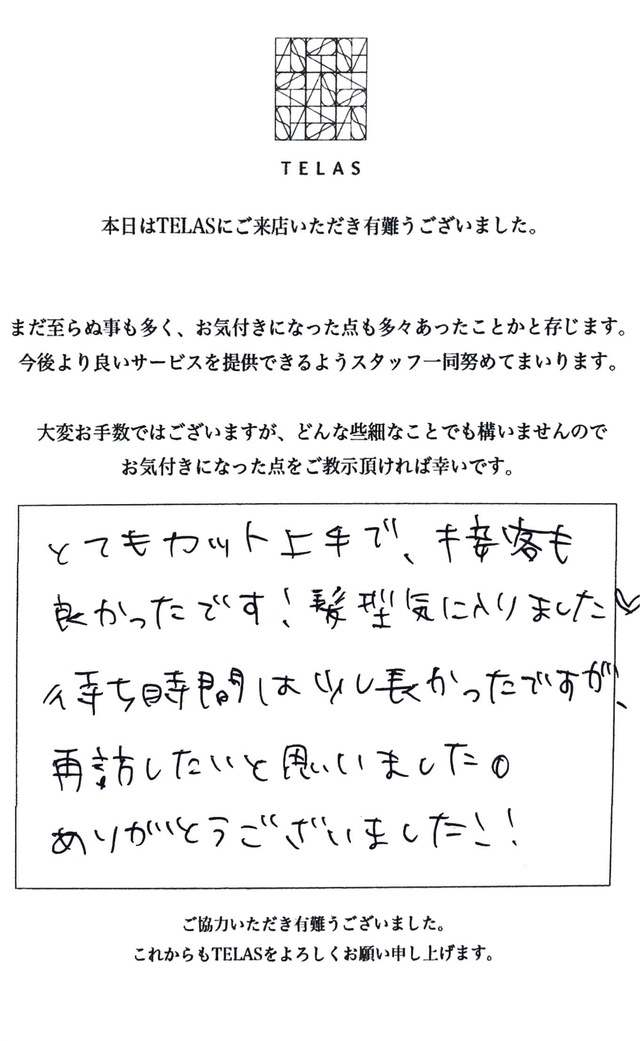 TELAS
本日はTELASにご来店いただき有難うございました。
まだ至らぬ事も多く、お気付きになった点も多々あったことかと存じます。
今後より良いサービスを提供できるようスタッフ一同努めてまいります。
大変お手数ではございますが、どんな些細なことでも構いませんので
お気付きになった点をご教示頂ければ幸いです。
とてもカット上手で、接客も
良かったです!髪型気に入りました♡
待ち時間は少し長かったですが、
再訪したいと思いいました。
ありがとうございました!!
ご協力いただき有難うございました。
これからもTELASをよろしくお願い申し上げます。